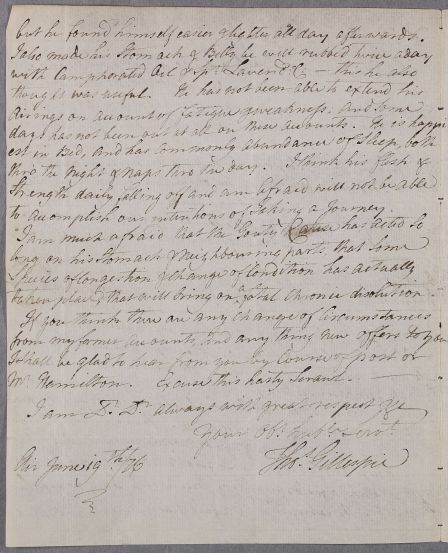 but he found himself easier & better all day afterwards.
I also made his Stomach & Belly be well rubbed twice a day
with Camphorated Oil & Spt. Lavend. C — this he also
thought was useful. He has not been able to extend his
Airings on account of fatigue & weakness. And some
days has not been out at all on these accounts. He is happi
est in Bed, and has commonly abundance of Sleep, both
thro the Night & Naps thro the day. I think his flesh &
Strength daily falling off and am afraid will not be able
to accomplish our intentions of taking a Journey.
I am much afraid that the Gouty Causa has acted so
long on his Stomach & Neighbouring parts that some
Species of Congestion & Change of Condition has actually
taken place, that will bring on a fatal Chronic dissolution.
If you think there are any change of Circumstances
from my former accounts, and any thing new offers to you
I shall be glad to hear from you by Course of post or
Mr. Hamilton. Excuse this hasty Scrawl —
I am Dr. Dr. always with great respect &c
Your Obt. humble Servt.
Thos. Gillespie
Air June 19th 76